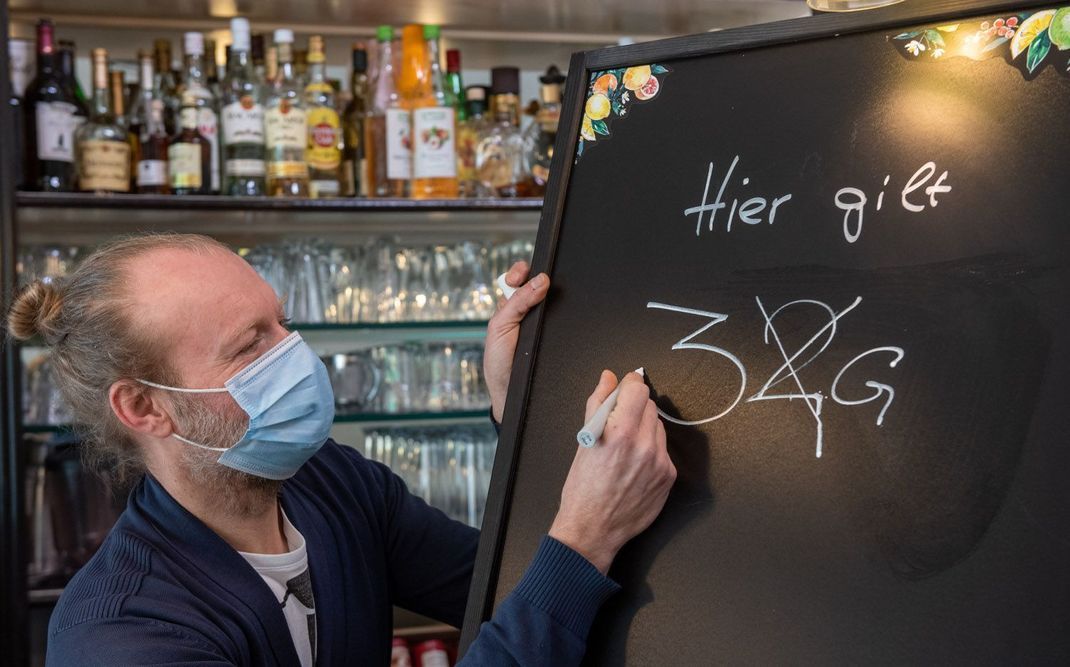 Hier gilt
32G